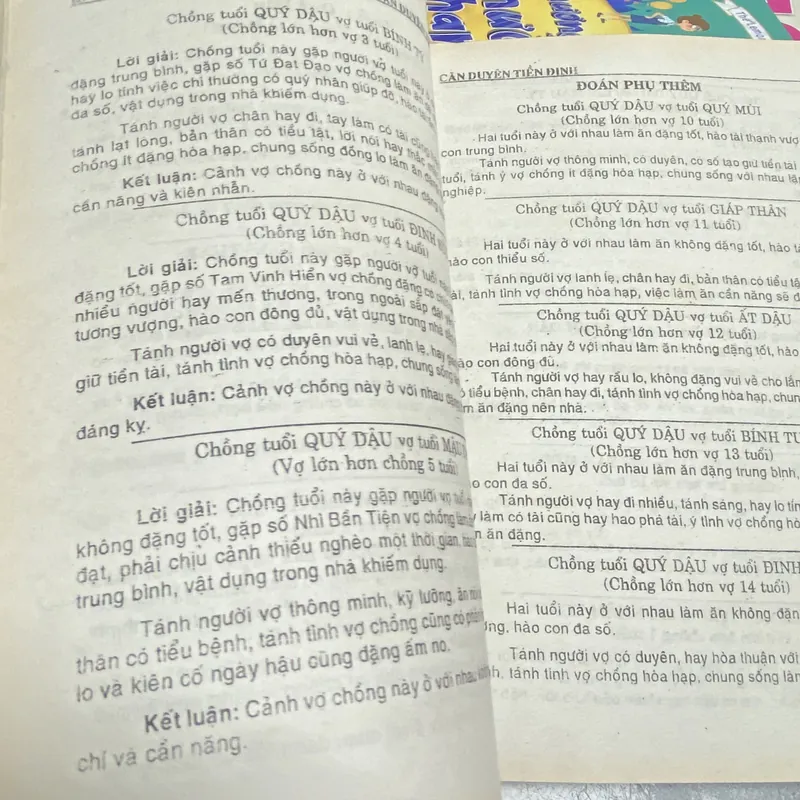 Chồng tuổi QUÝ DẬU vợ tuổi BÍNH TÝ
(Chồng lớn hơn vợ 3 tuổi)
Lời giải: Chồng tuổi này gặp người vợ tuổi này
đặng trung bình, gặp số Tứ Đạt Đạo vợ chồng làm ăn
hay lo tính việc chi thường có quý nhân giúp đỡ, hào
đa số, vật dụng trong nhà khiếm dụng.
Tánh người vợ chân hay đi, tay làm có tài
tánh lạt lòng, bản thân có tiểu tật, lời nói hay
chồng ít đặng hòa hạp, chung sống đồng lo làm ăn
Kết luận: Cảnh vợ chồng này ở với nhau
cần năng và kiên nhẫn.
Chồng tuổi QUÝ DẬU vợ tuổi ĐINH
(Chồng lớn hơn vợ 4 tuổi)
Lời giải: Chồng tuổi này gặp người vợ tuổi
đặng tốt, gặp số Tam Vinh Hiển vợ chồng đặng
nhiều người hay mến thương, trong ngoài sắp đặt
tương vượng, hào con đông đủ, vật dụng trong nhà
Tánh người vợ có duyên vui vẻ, lanh lẹ, hay
giữ tiền tài, tánh tình vợ chồng hòa hạp, chung sống
Kết luận: Cảnh vợ chồng này ở với nhau
đáng kỵ.
Chồng tuổi QUÝ DẬU vợ tuổi MẬU
(Vợ lớn hơn chồng 5 tuổi)
Lời giải: Chồng tuổi này gặp người vợ
không đặng tốt, gặp số Nhì Bần Tiện vợ chồng làm
đạt, phải chịu cảnh thiếu nghèo một thời gian,
trung bình, vật dụng trong nhà khiếm dụng.
Tánh người vợ thông minh, kỹ lưỡng, ăn nói
thân có tiểu bệnh, tánh tình vợ chồng cũng có
lo và kiên cố ngày hậu cũng đặng ấm no.
Kết luận: Cảnh vợ chồng này ở với nhau
chí và cần năng.
CĂN DUYÊN TIỀN ĐỊNH
ĐOÁN PHỤ THÊM
Chồng tuổi QUÝ DẬU vợ tuổi QUÝ MÙI
(Chồng lớn hơn vợ 10 tuổi)
Hai tuổi này ở với nhau làm ăn đặng tốt, hào tài thạnh vượ
con trung bình.
Tánh người vợ thông minh, có duyên, có số tạo giữ tiền tài
tuổi, tánh ý vợ chồng ít đặng hòa hạp, chung sống với nhau
nghiệp.
Chồng tuổi QUÝ DẬU vợ tuổi GIÁP THÂN
(Chồng lớn hơn vợ 11 tuổi)
Hai tuổi này ở với nhau làm ăn không đặng tốt, hào
hào con thiểu số.
Tánh người vợ lanh lẹ, chân hay đi, bản thân có tiểu
tài, tánh tình vợ chồng hòa hạp, việc làm ăn cần năng sẽ
Chồng tuổi QUÝ DẬU vợ tuổi ẤT DẬU
(Chồng lớn hơn vợ 12 tuổi)
Hai tuổi này ở với nhau làm ăn không đặng tốt, hào
hào con đông đủ.
Tánh người vợ hay rầu lo, không đặng vui vẻ cho lắm
tiểu bệnh, chân hay đi, tánh tình vợ chồng hòa hạp, chun
ăn đặng nên nhà.
Chồng tuổi QUÝ DẬU vợ tuổi BÍNH TU
(Chồng lớn hơn vợ 13 tuổi)
Hai tuổi này ở với nhau làm ăn đặng trung bình,
con đa số.
Tánh người vợ hay đi nhiều, tánh sáng, hay lo tín
làm có tài cũng hay hao phá tài, ý tình vợ chồng hò
ăn đặng.
Chồng tuổi QUÝ DẬU vợ tuổi ĐINH
(Chồng lớn hơn vợ 14 tuổi)
Hai tuổi này ở với nhau làm ăn không đặn
hào con đa số.
Tánh người vợ có duyên, hay hòa thuận với
tánh tình vợ chồng hòa hạp, chung sống làm